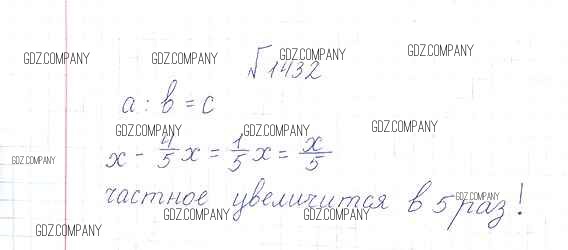 GDZ.COMPANY GDZ.COMPANY GDZ.COMPANY GDZ.COMPANY
√1432
a : b = c
GDZ.COMPANY GDZ.COMPANY GDZ.COMPANY
GDZ.COMPANY
x - 4/5 x = 1/5 x = x/5
частное увеличится в 5 раз!
GDZ.COMPANY
GDZ.COMPANY GDZ.COMPANY
GDZ.COMPANY